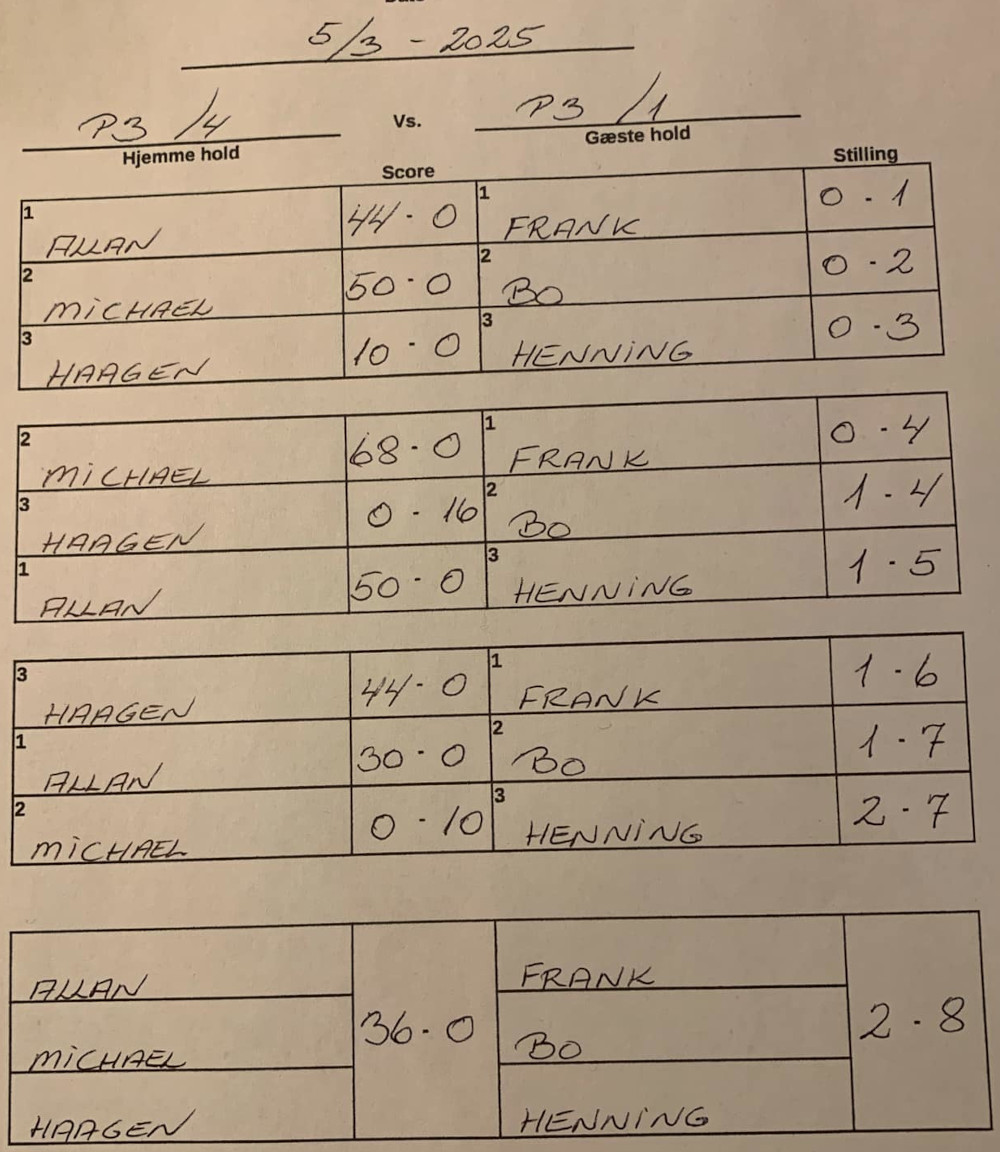 5/3 - 2025
P3 /4 Vs. P3 /1
Hjemme hold Gæste hold
Score Stilling
1 ALLAN 44 - 0 1 FRANK 0 - 1
2 MICHAEL 50 - 0 2 BO 0 - 2
3 HAAGEN 10 - 0 3 HENNING 0 - 3
2 MICHAEL 68 - 0 1 FRANK 0 - 4
3 HAAGEN 0 - 16 2 BO 1 - 4
1 ALLAN 50 - 0 3 HENNING 1 - 5
3 HAAGEN 44 - 0 1 FRANK 1 - 6
1 ALLAN 30 - 0 2 BO 1 - 7
2 MICHAEL 0 - 10 3 HENNING 2 - 7
ALLAN FRANK
MICHAEL 36 - 0 BO 2 - 8
HAAGEN HENNING